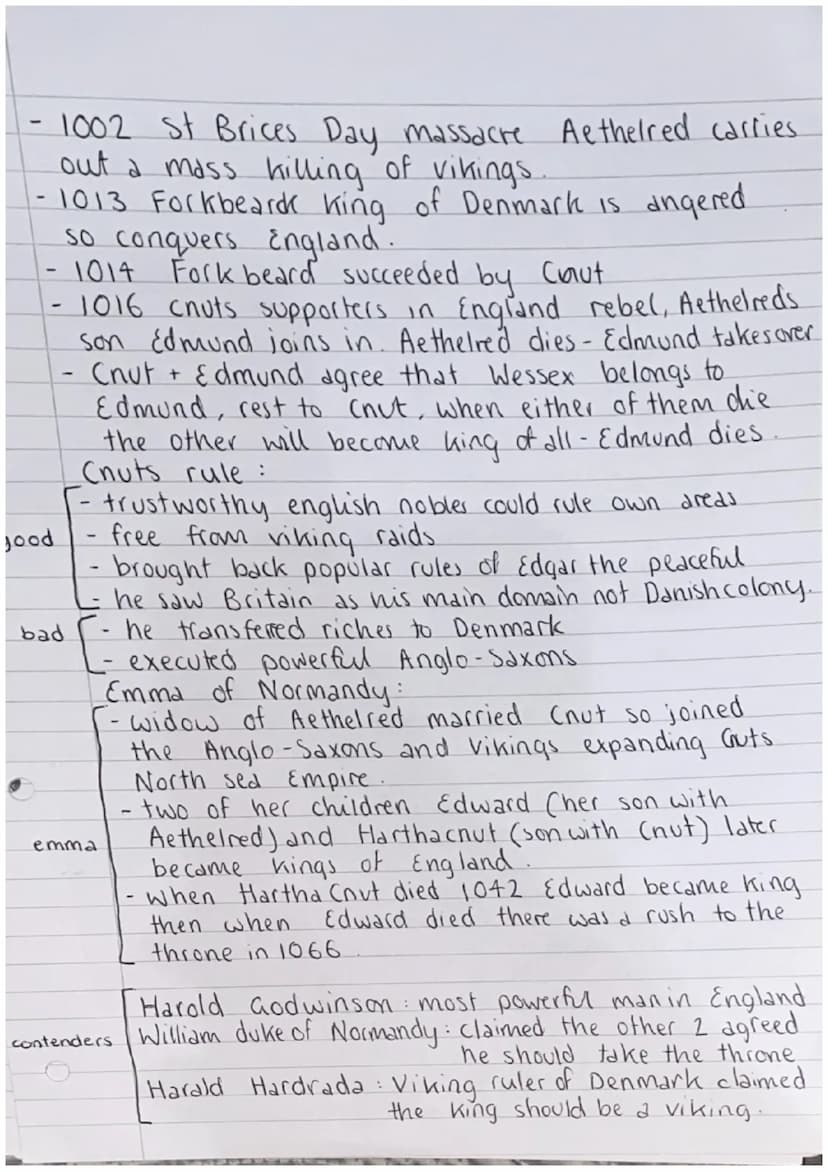 - 1002 St Brices Day massacre Aethelred carries
out a mass killing of vikings.
- 1013 Forkbeard King of Denmark is angered
so conquers England.
- 1014 Fork beard succeeded by Cnut
- 1016 cnuts supporters in England rebel, Aethelreds
son Edmund joins in. Aethelred dies - Edmund takes over
- Cnut + Edmund agree that Wessex belongs to
Edmund, rest to Cnut, when either of them die
the other will become king of all - Edmund dies.
Cnuts rule :
- trustworthy english nobles could rule own areas
good - free from viking raids
- brought back popular rules of Edgar the peaceful
- he saw Britain as his main domain not Danish colony.
bad - he transferred riches to Denmark
- executed powerful Anglo-Saxons
Emma of Normandy:
- widow of Aethelred married Cnut so joined
the Anglo-Saxons and Vikings expanding Cnuts
North sea Empire.
- two of her children Edward (her son with
emma Aethelred) and Harthacnut (son with Cnut) later
became kings of England.
- when Hartha Cnut died 1042 Edward became King
then when Edward died there was a rush to the
throne in 1066.
Harold Godwinson : most powerful man in England
contenders William duke of Normandy : claimed the other 2 agreed
he should take the throne
Harald Hardrada : Viking ruler of Denmark claimed
the King should be a viking.